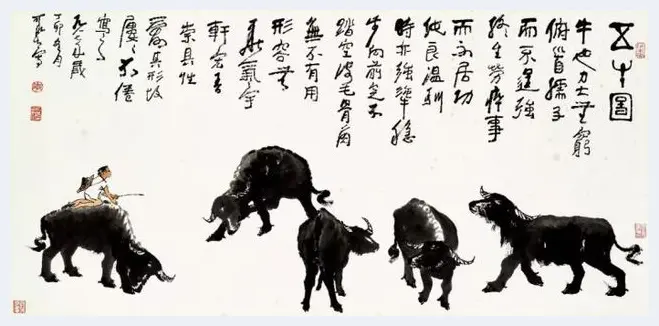 五牛圖
牛也力大無窮
俯首孺子
而不逞強
終生勞瘁事
而不居功
純良温馴
時亦強犟穩
步向前足不
踏空皮毛骨角
無不有用
形容無
華氣宇
軒宏吾
崇其性
愛其形故
屢屢不倦
寫之
可染寫